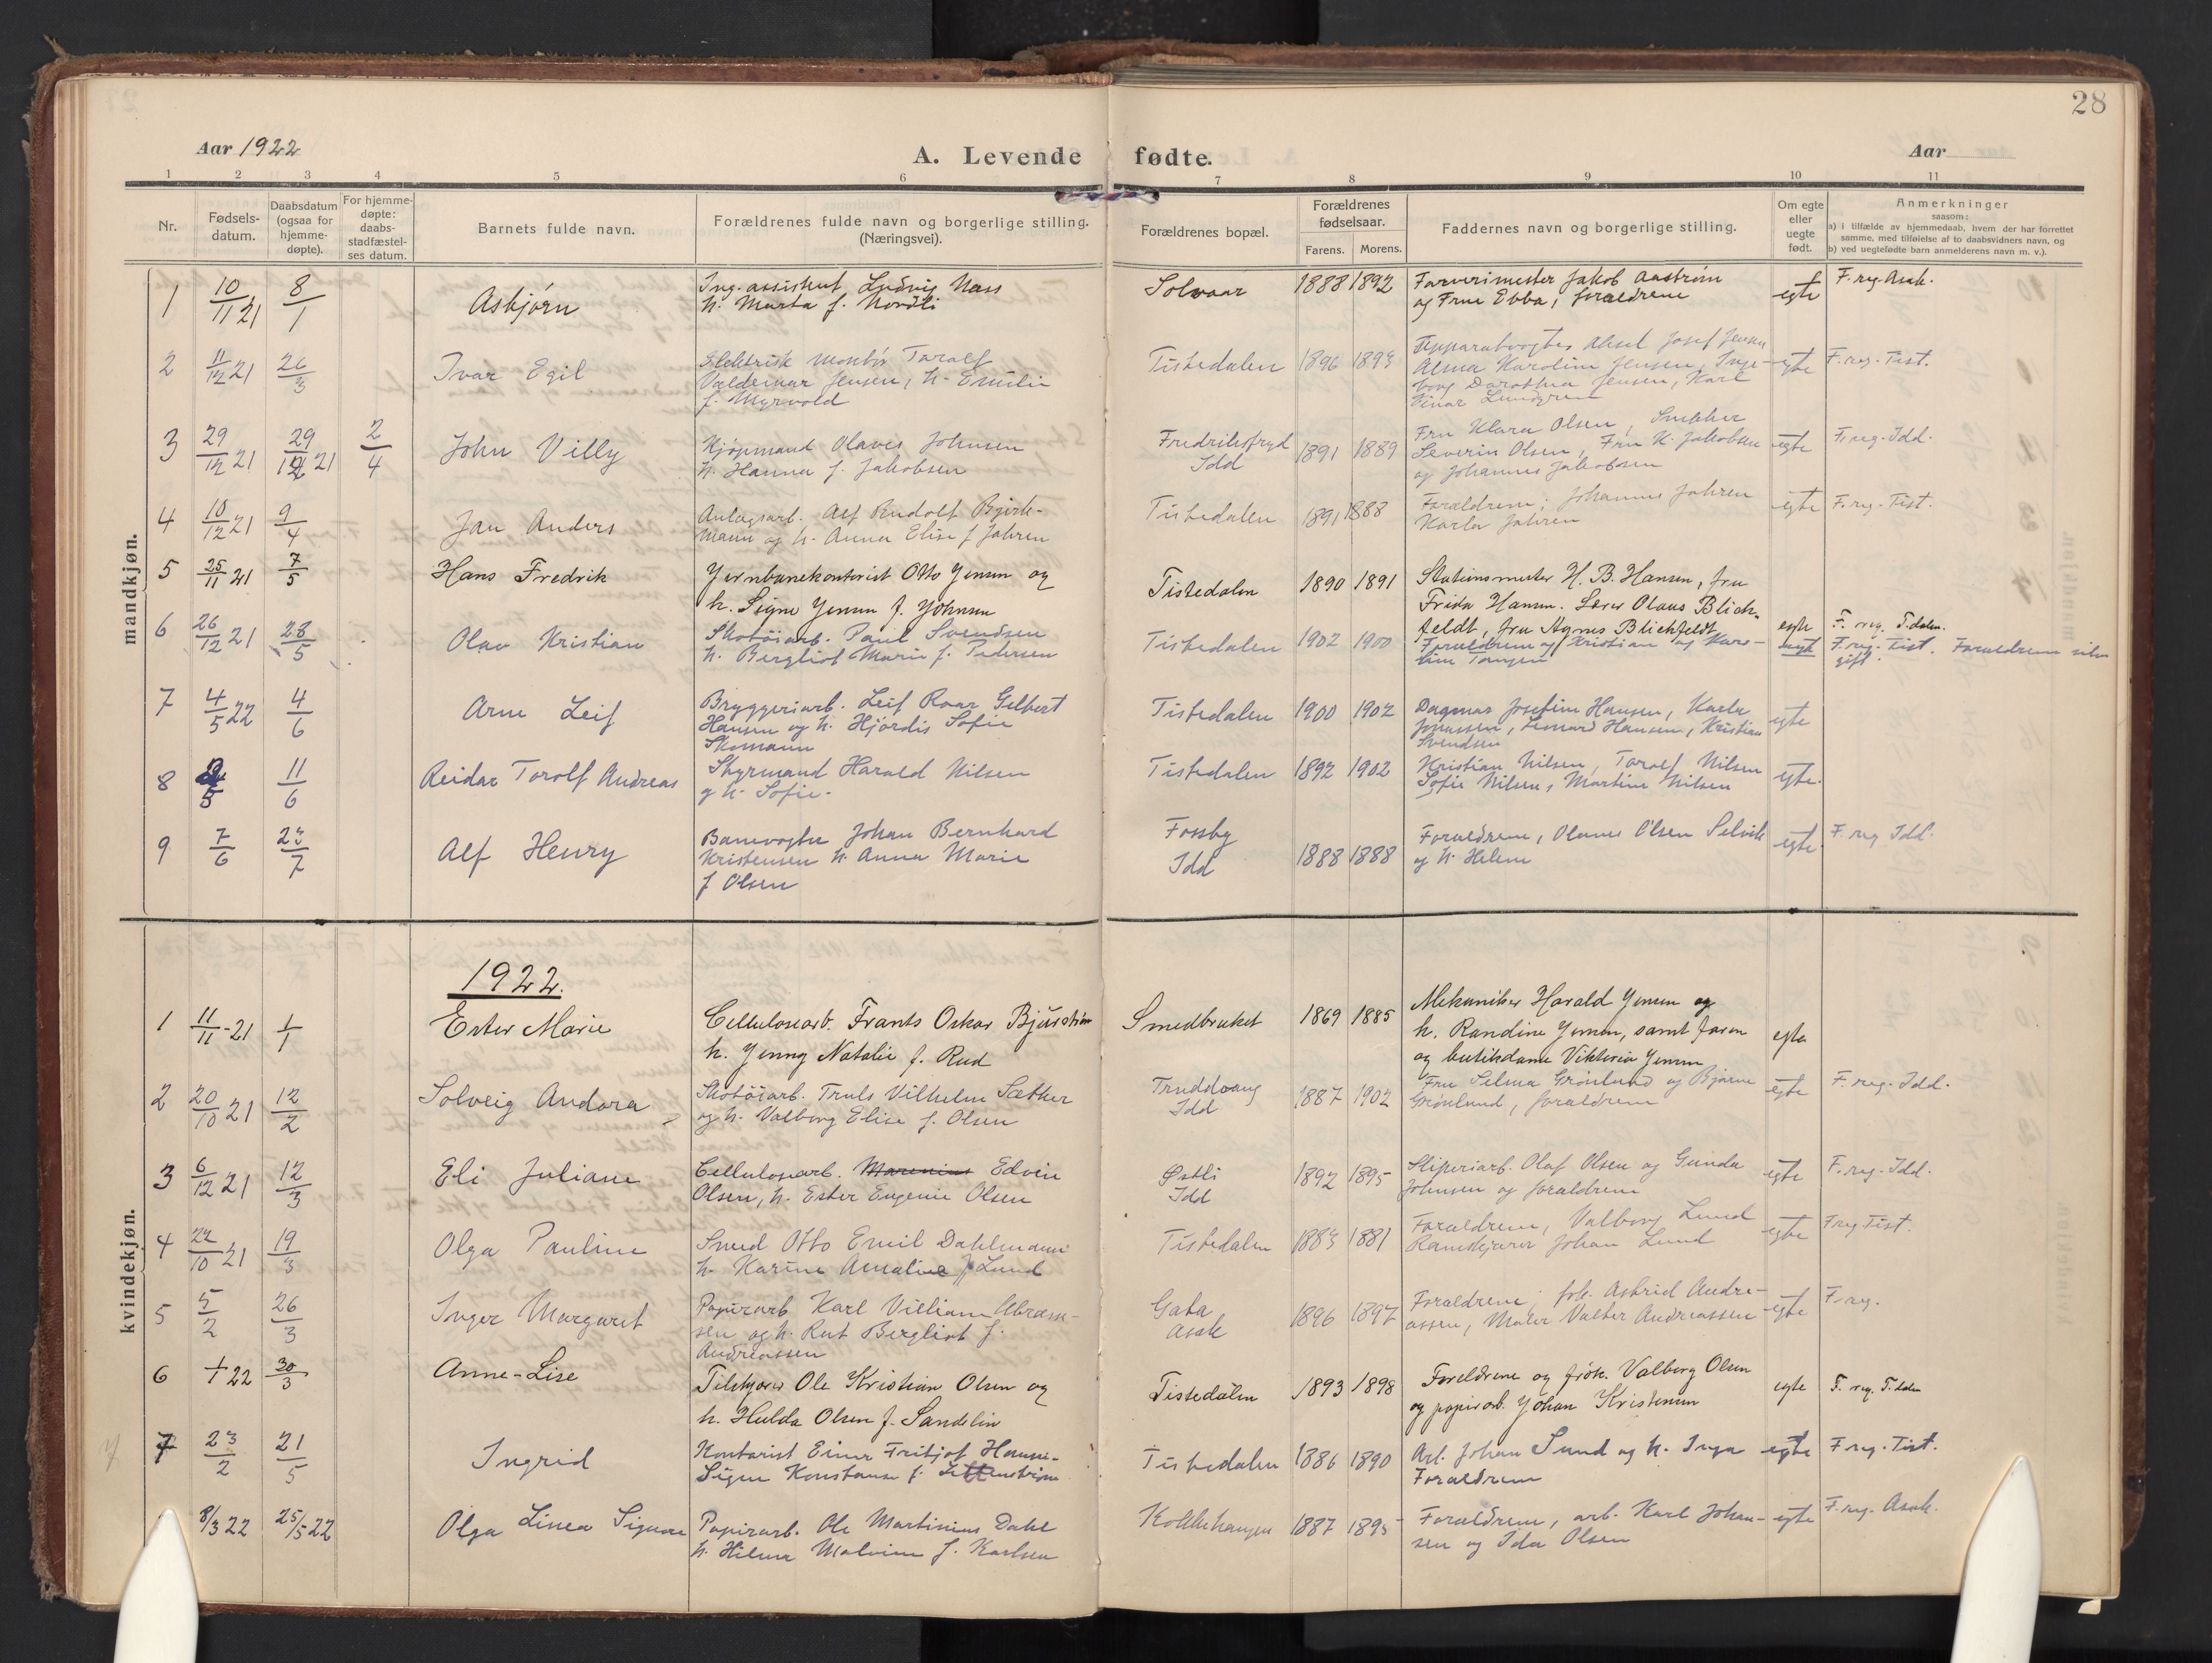 28
Aar 1922
A. Levende fødte.
Aar
1 2 3 4 5 6 7 8 9 10 11
Nr.
Fødsels-
datum.
Daabsdatum
(ogsaa for
hjemme-
døpte).
For hjemme-
døpte:
daabs-
stadfæstel-
ses datum.
Barnets fulde navn.
Forældrenes fulde navn og borgerlige stilling.
(Næringsvei).
Forældrenes bopæl.
Forældrenes
fødselsaar.
Farens. Morens.
Faddernes navn og borgerlige stilling.
Om egte
eller
uegte
født.
Anmerkninger
saasom:
a) i tilfælde av hjemmedaab, hvem der har forrettet
samme, med tilføielse af to daabsvidners navn, og
b) ved uegtefødte barn anmelderens navn m. v.).
mandkjøn.
1 10/11 21 8/1 Asbjørn
Ing. assistent Ludvig Næss
h. Marta f. Nordli
Solvaar 1888 1892
Farverimester Jakob Aastrøm
og Frue Ebba, forældrene
egte F. reg. Asak.
2 11/12 21 26/3 Ivar Egil
Elektrisk montør Toralf
Valdemar Jensen, h. Emilie
f. Myrvold
Tistedalen 1896 1893
Aksel Josef Jensen
Alma Karoline Jensen, Inge-
borg Dorothea Jensen, Karl
Einar Lundgren
egte F. reg. Tist.
3 29/12 21 29/12 21 2/4 John Villy
Kjøpmand Olaves Johnsen
h. Hanna f. Jakobsen
Fredriksfryd
Idd
1891 1889
Fru Klara Olsen, Snekker
Severin Olsen, Fru K. Jakobsen
og Johannes Jakobsen
egte F. reg. Idd.
4 10/12 21 9/4 Jan Anders
Anlægsarb. Alf Rudolf Bjerk-
mann og h. Anna Elise f Jahren
Tistedalen 1891 1888
Forældrene, Johannes Jahren
Karla Jahren
egte F. reg. Tist.
5 25/11 21 7/5 Hans Fredrik
Jernbanekontorist Otto Jensen og
h. Signe Jensen f. Johnsen
Tistedalen 1890 1891
Stationsmester H. B. Hansen, fru
Frida Hansen. Lærer Olaus Blich-
feldt, fru Agnes Blichfeldt
egte F. reg. T.dalen.
6 26/12 21 28/5 Olav Kristian
Skotøiarb. Paul Svendsen
h. Bergliot Marie f. Pedersen
Tistedalen 1902 1900
Forældrene og Kristian og Karo-
line Tangen
F. reg. Tist. Forældrene
gift.
7 4/5 22 4/6 Arne Leif
Bryggeriarb. Leif Roar Gilbert
Hansen og h. Hjørdis Sofie
Skomann
Tistedalen 1900 1902
Dagmar Josefine Hansen, Karla
Jonassen, Leonard Hansen, Kristian
Svendsen
egte
8 11/6 Reidar Torolf Andreas
Styrmand Harald Nilsen
og h. Sofie.
Tistedalen 1892 1902
Kristian Nilsen, Toralf Nilsen
Sofie Nilsen, Martine Nilsen
egte.
9 7/6 23/7 Alf Henry
Banevogter Johan Bernhard
Kristensen h. Anna Marie
f Olsen
Fossby
Idd
1888 1888
Forældrene, Olaves Olsen Selvik
og h. Helene
egte F. reg Idd.
kvindekjøn.
1922.
1 11/11-21 1/1 Ester Marie
Cellulosearb. Frants Oskar Bjurstrøm
h. Jenny Natalie f. Rud
Smedbruket 1869 1885
Mekaniker Harald Jensen og
h. Randine Jensen, samt faren
og butikdame Viktoria Jensen
egte
2 20/10 21 12/2 Solveig Andora
Skotøiarb. Truls Vilhelm Sæther
og h. Valborg Elise f. Olsen
Truddvang
Idd
1887 1902
Fru Selma Grønlund og Bjarne
Grønlund, forældrene
egte F. reg. Idd.
3 6/12 21 12/3 Eli Juliane
Cellulosearb. Marenius Edvin
Olsen, h. Ester Eugenie Olsen
Østli
Idd
1892 1895
Sliperiarb. Olaf Olsen og Gunda
Johnsen og forældrene
egte F. reg. Idd.
4 22/10 21 19/3 Olga Pauline
Smed Otto Emil Dahlmann
h. Karine Amalie f Lund
Tistedalen 1883 1881
Forældrene, Valborg Lund
Johan Lund
egte F reg Tist.
5 5/2 26/3 Inger Margaret
Papirarb Karl Villiam Abraham-
sen og h. Rut Bergliot f.
Andreassen
Gata
Asak
1896 1897
Forældrene, frk. Astrid Andre-
assen, Maler Valter Andreassen
egte F. reg.
6 1/1 22 30/3 Anne-Lise
Tilskjærer Ole Kristian Olsen og
h. Hulda Olsen f. Sandelin
Tistedalen 1893 1898
Forældrene og frøk. Valborg Olsen
og papirarb. Johan Kristensen
egte F. reg. T.dalen
7 23/2 21/5 Ingrid
Kontorist Einar Fritjof Hansen-
Signe Konstanse f.
Tistedalen 1886 1890
Arb. Johan Lund og h. Inga
Forældrene
egte F reg. Tist.
8/3 22 25/5 22 Olga Linea Signora
Papirarb. Ole Martinius Dahl
h. Hilma Malvine f. Karlsen
Kollehaugen 1887 1895
Forældrene, arb. Karl Johan-
sen og Ida Olsen
egte F. reg. Asak.